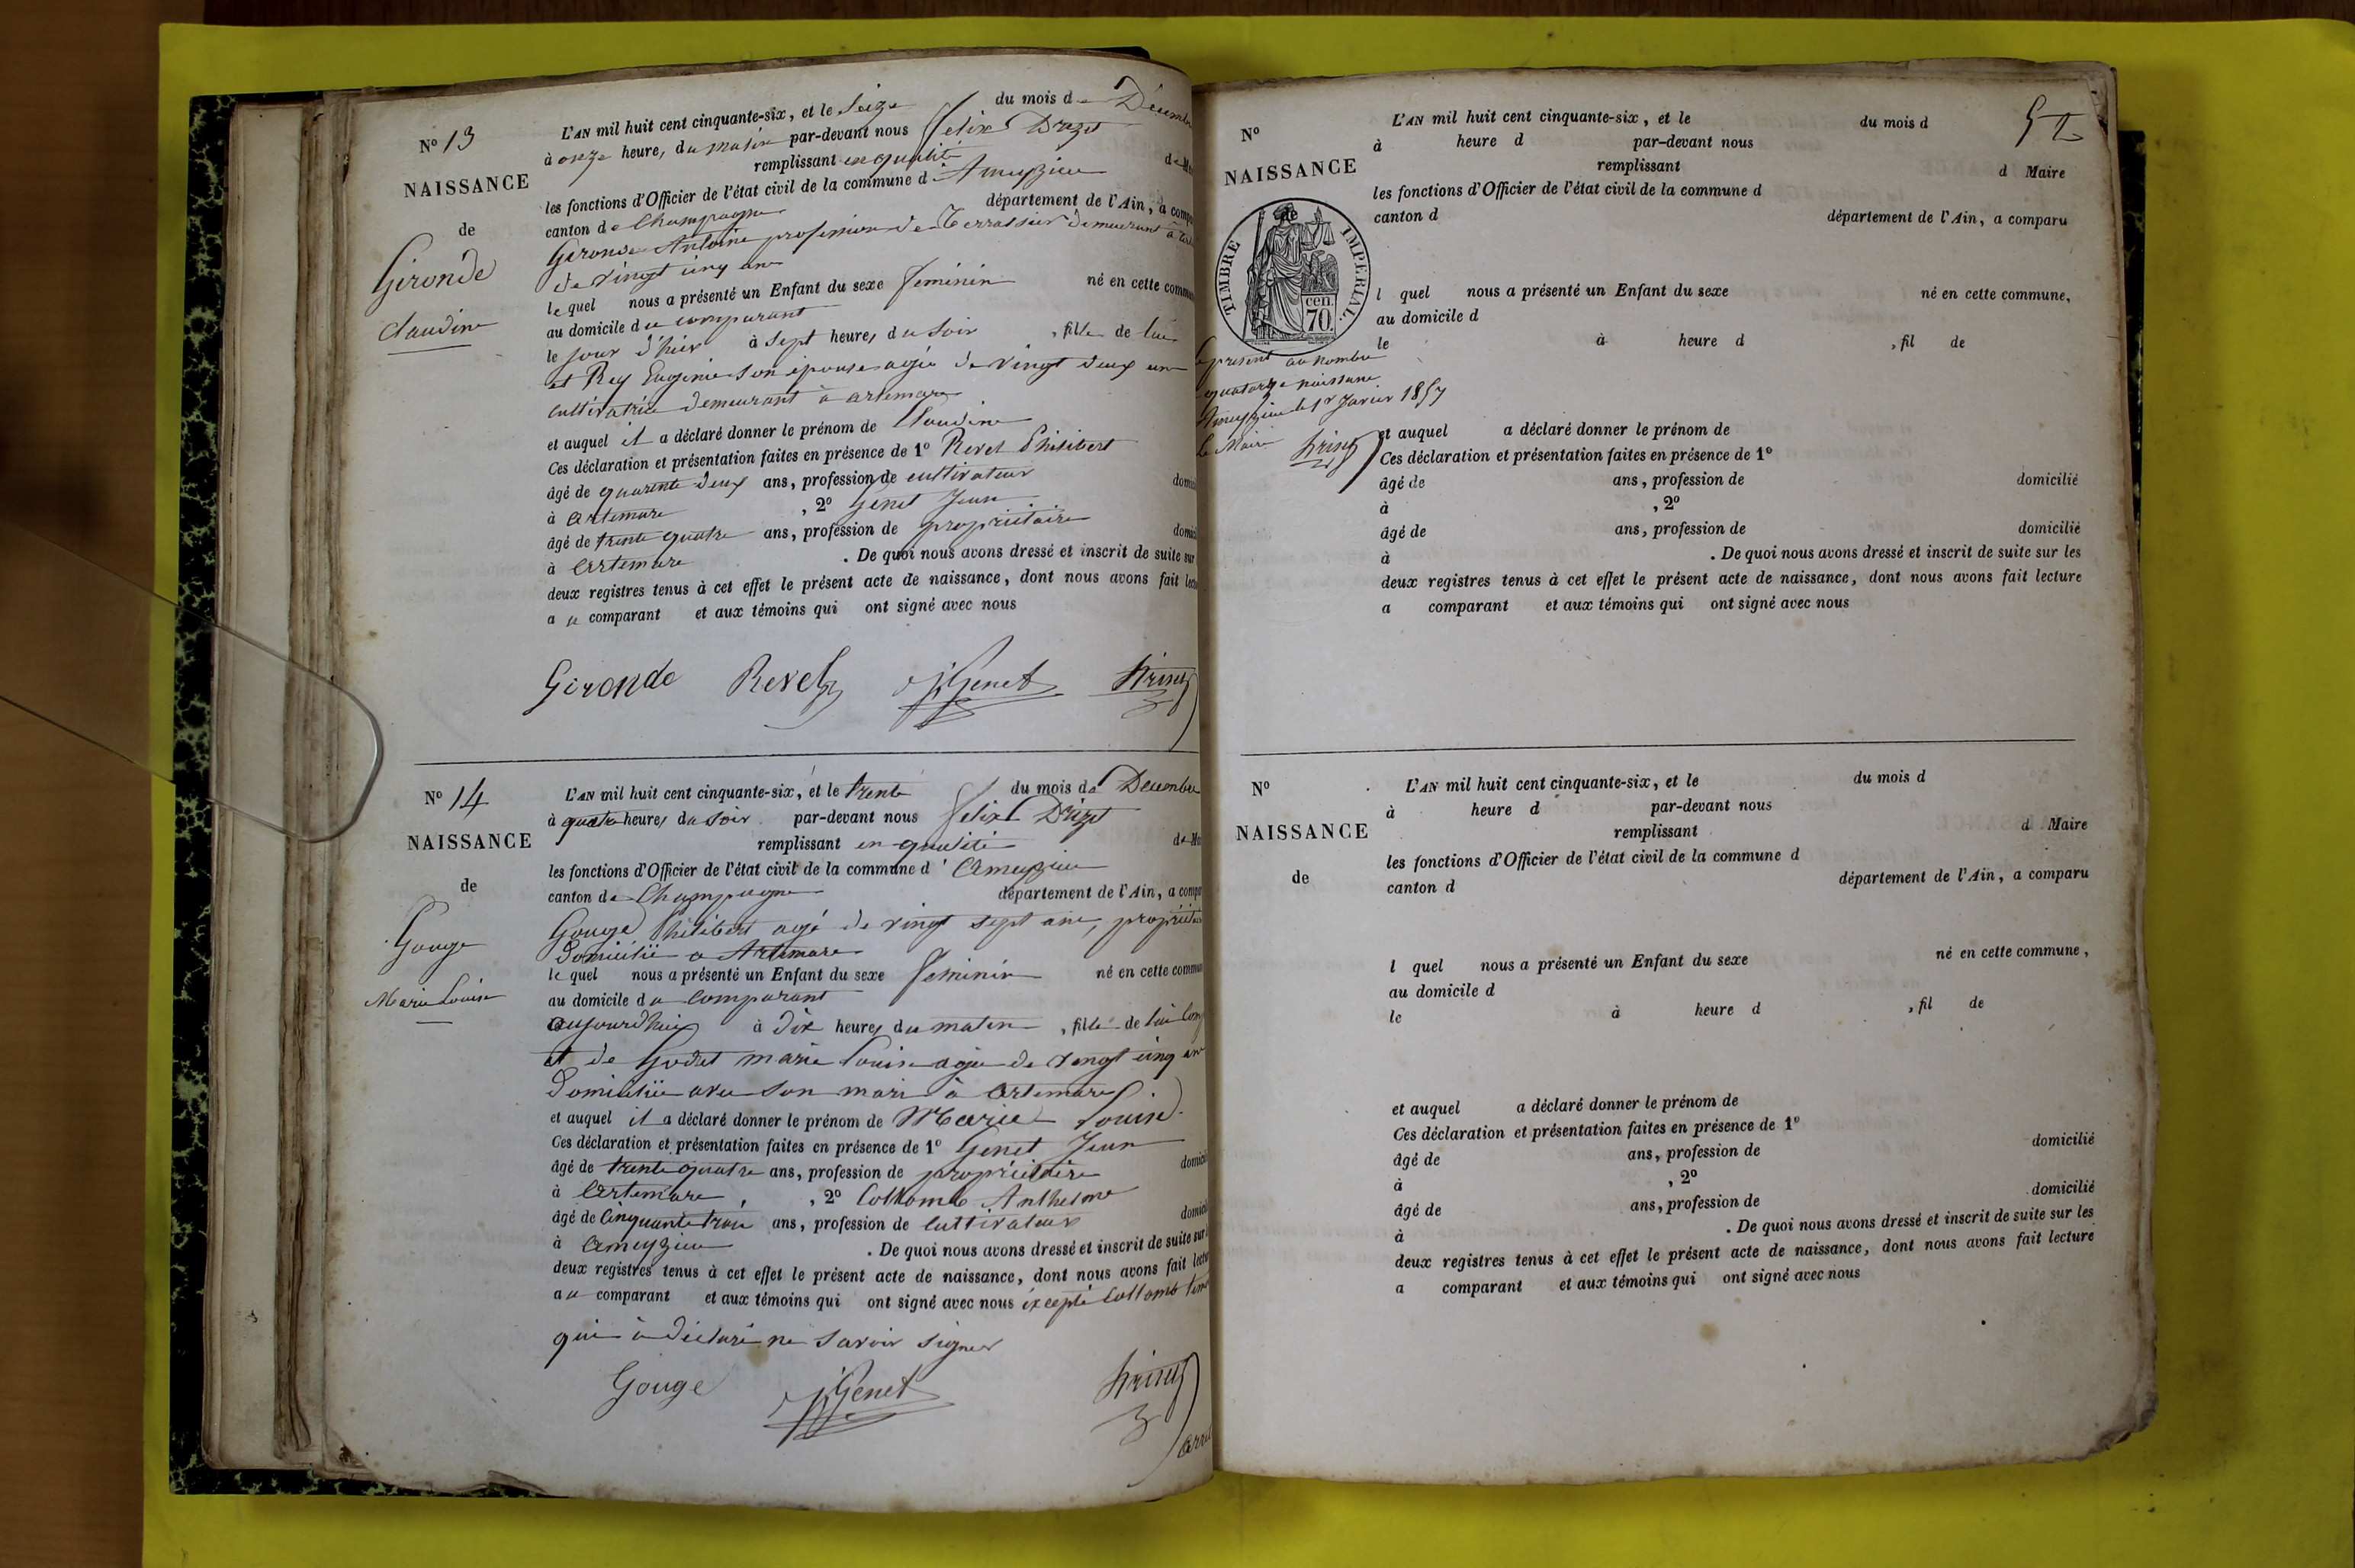 N° 13
NAISSANCE
de
Gironde
Claudine
L'AN mil huit cent cinquante-six, et le Seize du mois de Décembre
à onze heures du matin par-devant nous Felix
remplissant en qualité de Ma
les fonctions d'Officier de l'état civil de la commune d'Ameyzieu
canton de Champagne département de l'Ain, a compa
Gironde Antoine profession de Terrassier demeurant à
de vingt cinq ans
lequel nous a présenté un Enfant du sexe feminin né en cette commun
au domicile du comparant
le jour d'hier à sept heures du soir, fille de lui
et Rey Eugenie son épouse agée de vingt deux ans
cultivatrice demeurant à artemare
et auquel il a déclaré donner le prénom de Claudine
Ces déclaration et présentation faites en présence de 1° Revel Philibert
âgé de quarente deux ans, profession de cultivateur domici
à Artemare, 2° Genet Jean
âgé de trente quatre ans, profession de propriétaire domici
à Artemare. De quoi nous avons dressé et inscrit de suite sur
deux registres tenus à cet effet le présent acte de naissance, dont nous avons fait lect
au comparant et aux témoins qui ont signé avec nous
Gironde Revel JGenet
N° 14
NAISSANCE
de
Gouge
Marie Louise
L'AN mil huit cent cinquante-six, et le trente du mois de Decembre
à quatre heures du soir par-devant nous Felix
remplissant en qualité de Ma
les fonctions d'Officier de l'état civil de la commune d'Ameyzieu
canton de Champagne département de l'Ain, a compa
Gouge Philibert agé de vingt sept ans, propriétai
Domicilié a Artemare
lequel nous a présenté un Enfant du sexe feminin né en cette commun
au domicile du comparant
aujourd'hui à dix heures du matin, fille de lui com
et de Godet marie Louise agée de vingt cinq ans
Domiciliée avec son mari à Artemare
et auquel il a déclaré donner le prénom de Marie Louise.
Ces déclaration et présentation faites en présence de 1° Genet Jean
âgé de trente quatre ans, profession de propriétaire domici
à Artemare, 2° Collomb Anthelme
âgé de Cinquante trois ans, profession de cultivateur domici
à Ameyzieu. De quoi nous avons dressé et inscrit de suite sur l
deux registres tenus à cet effet le présent acte de naissance, dont nous avons fait lectu
au comparant et aux témoins qui ont signé avec nous excepté Collomb
qui à déclaré ne savoir signer
Gouge JGenet
N°
NAISSANCE
de
TIMBRE IMPERIAL
70 cen.
L'AN mil huit cent cinquante-six, et le du mois d
à heure d par-devant nous
remplissant d Maire
les fonctions d'Officier de l'état civil de la commune d
canton d département de l'Ain, a comparu
l quel nous a présenté un Enfant du sexe né en cette commune,
au domicile d
le à heure d, fil de
présent au nombre
quatorze naissance
Ameyzieu le 1er Janvier 1857
le Maire
et auquel a déclaré donner le prénom de
Ces déclaration et présentation faites en présence de 1°
âgé de ans, profession de domicilié
à, 2°
âgé de ans, profession de domicilié
à. De quoi nous avons dressé et inscrit de suite sur les
deux registres tenus à cet effet le présent acte de naissance, dont nous avons fait lecture
a comparant et aux témoins qui ont signé avec nous
N°
NAISSANCE
de
L'AN mil huit cent cinquante-six, et le du mois d
à heure d par-devant nous
remplissant d Maire
les fonctions d'Officier de l'état civil de la commune d
canton d département de l'Ain, a comparu
l quel nous a présenté un Enfant du sexe né en cette commune,
au domicile d
le à heure d, fil de
et auquel a déclaré donner le prénom de
Ces déclaration et présentation faites en présence de 1°
âgé de ans, profession de domicilié
à, 2°
âgé de ans, profession de domicilié
à. De quoi nous avons dressé et inscrit de suite sur les
deux registres tenus à cet effet le présent acte de naissance, dont nous avons fait lecture
a comparant et aux témoins qui ont signé avec nous